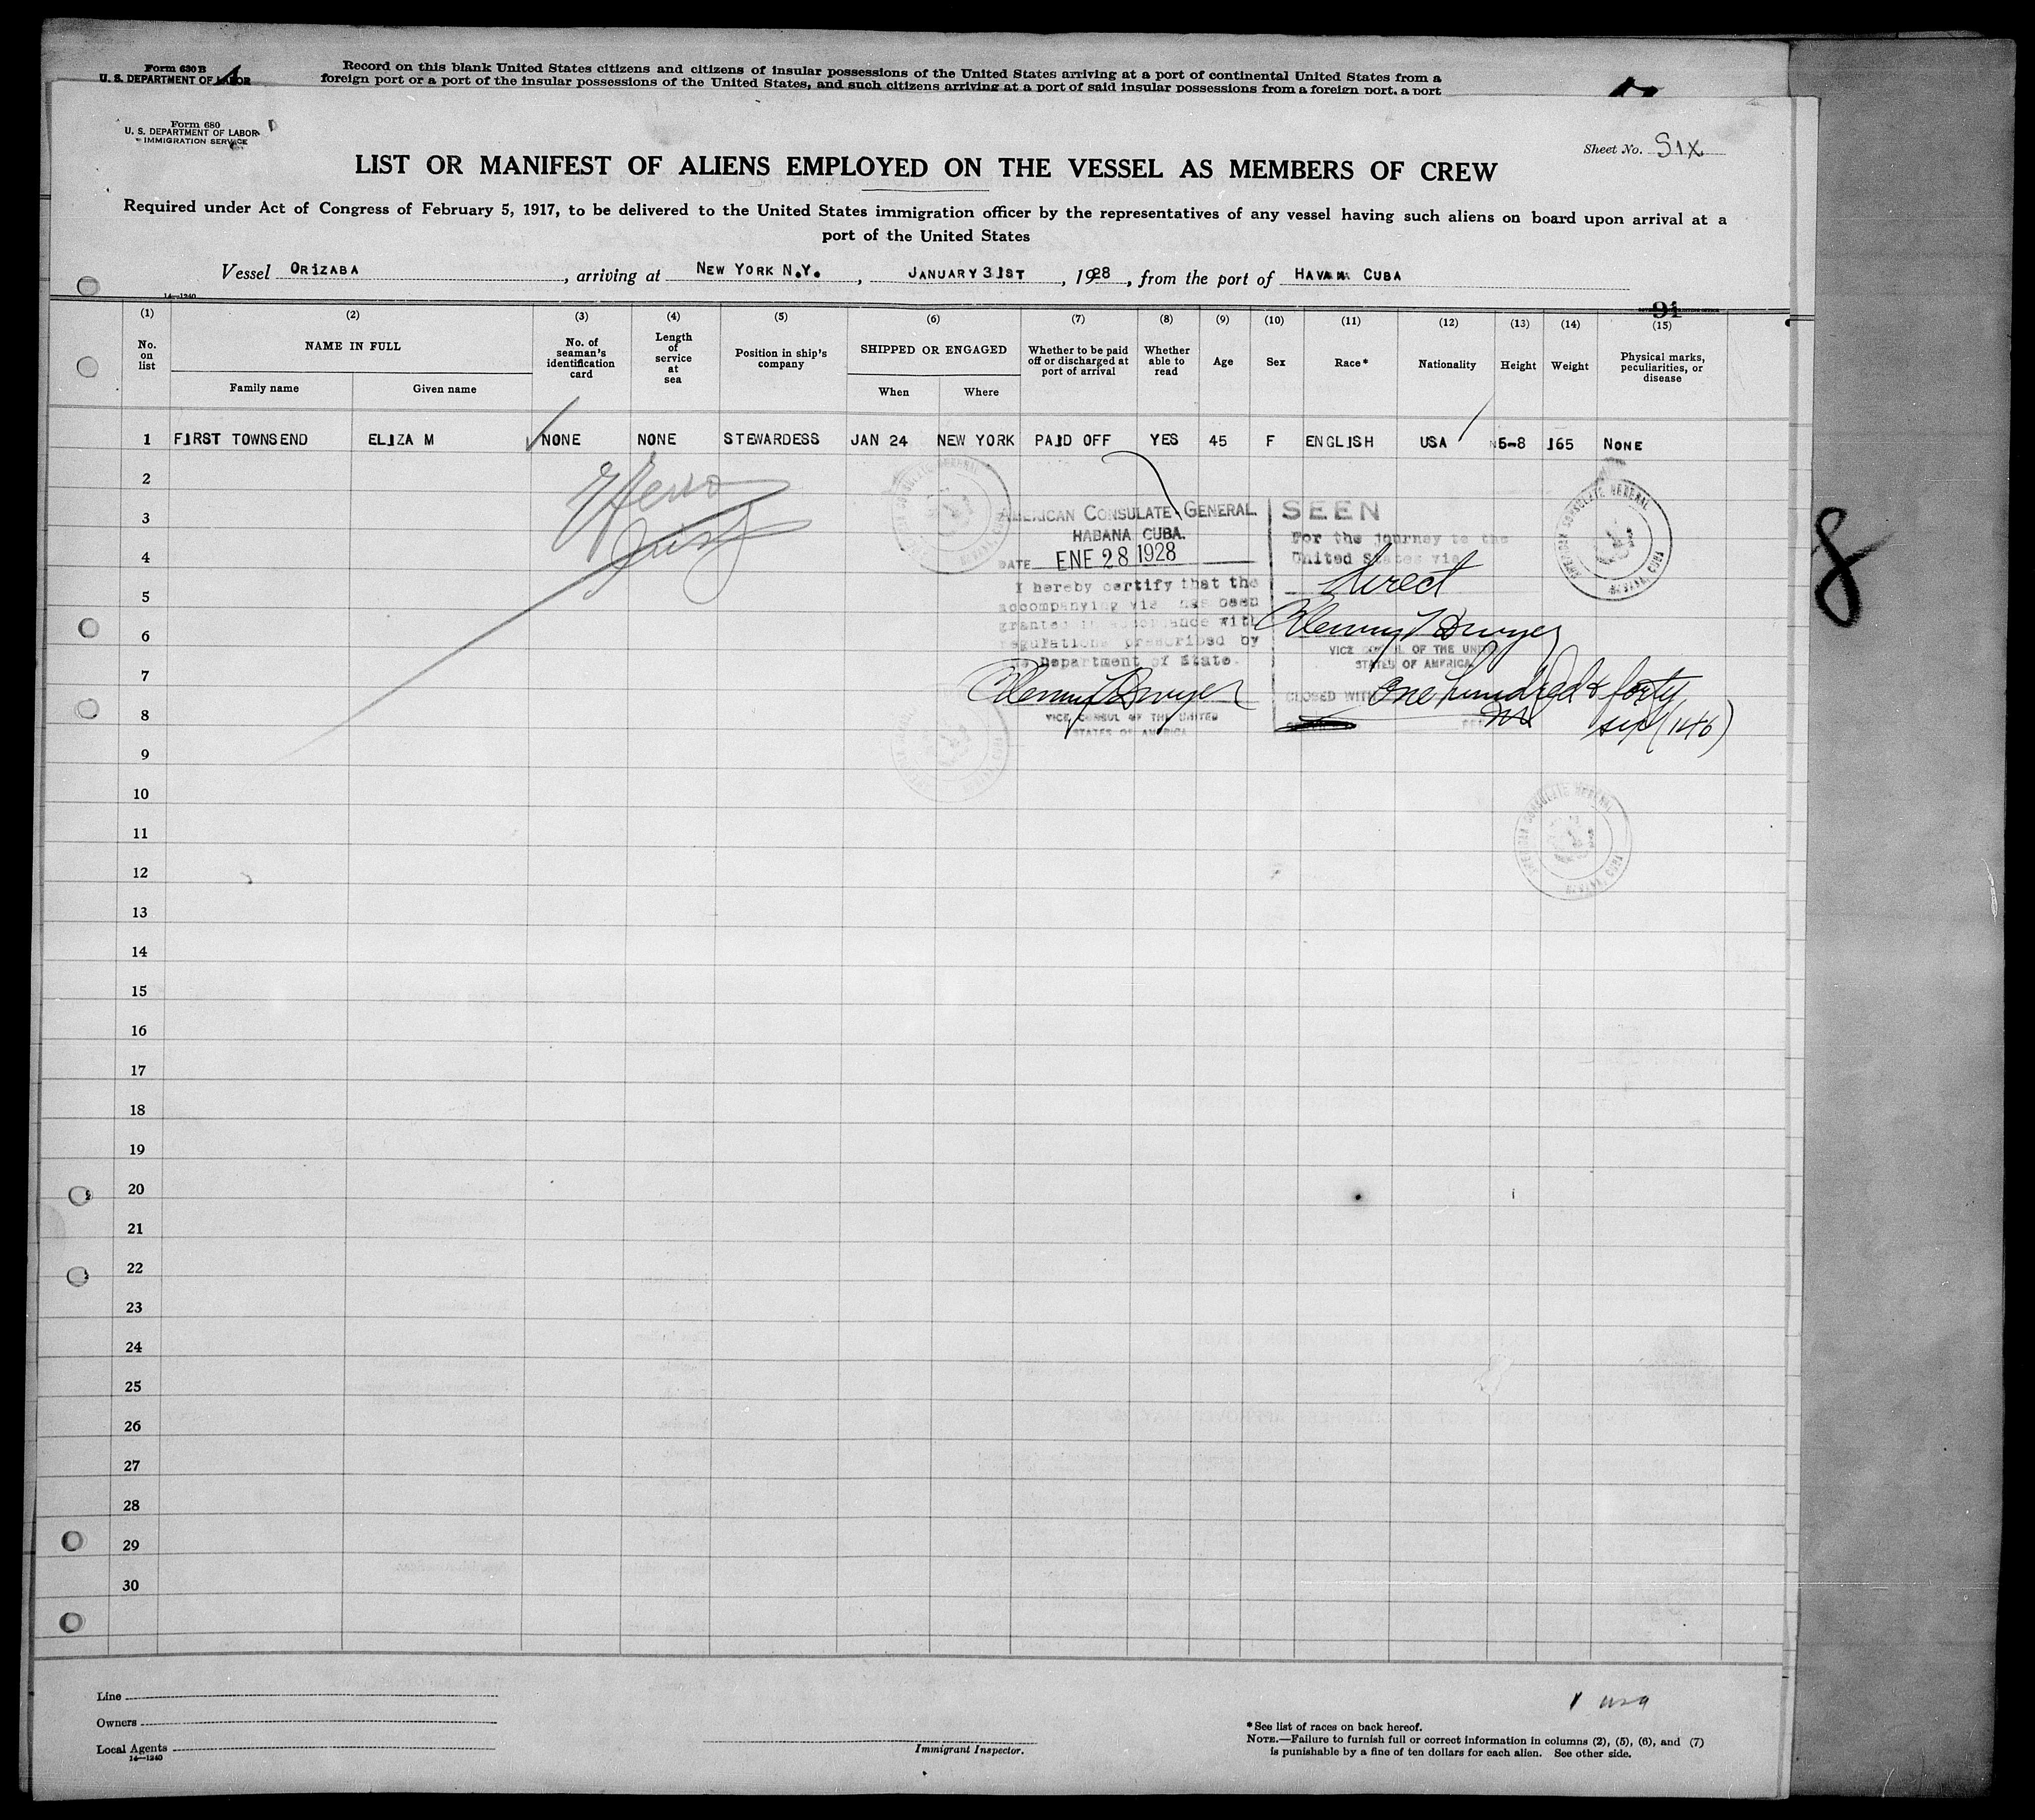 Form 630 B
U. S. DEPARTMENT OF LABOR
Record on this blank United States citizens and citizens of insular possessions of the United States arriving at a port of continental United States from a
foreign port or a port of the insular possessions of the United States, and such citizens arriving at a port of said insular possessions from a foreign port, a port
Form 680
U. S. DEPARTMENT OF LABOR
IMMIGRATION SERVICE
Sheet No. Six
LIST OR MANIFEST OF ALIENS EMPLOYED ON THE VESSEL AS MEMBERS OF CREW
Required under Act of Congress of February 5, 1917, to be delivered to the United States immigration officer by the representatives of any vessel having such aliens on board upon arrival at a
port of the United States
Vessel ORIZABA, arriving at NEW YORK N.Y., JANUARY 31ST, 1928, from the port of HAVANA CUBA
14—1240
91
(1) (2) (3) (4) (5) (6) (7) (8) (9) (10) (11) (12) (13) (14) (15)
No. on list NAME IN FULL No. of seaman's identification card Length of service at sea Position in ship's company SHIPPED OR ENGAGED Whether to be paid off or discharged at port of arrival Whether able to read Age Sex Race* Nationality Height Weight Physical marks, peculiarities, or disease
Family name Given name When Where
1 FIRST TOWNSEND ELIZA M NONE NONE STEWARDESS JAN 24 NEW YORK PAID OFF YES 45 F ENGLISH USA 5-8 165 NONE
2
3
4
5
6
7
8
9
10
11
12
13
14
15
16
17
18
19
20
21
22
23
24
25
26
27
28
29
30
AMERICAN CONSULATE GENERAL
HABANA, CUBA.
DATE ENE 28 1928
I hereby certify that the
accompanying visa has been
granted in accordance with
regulations prescribed by
the Department of State.
VICE CONSUL OF THE UNITED
STATES OF AMERICA
SEEN
For the journey to the
United States via
Direct
VICE CONSUL OF THE UNITED
STATES OF AMERICA
CLOSED WITH One hundred & forty
six (146)
AMERICAN CONSULATE GENERAL
HABANA, CUBA
AMERICAN CONSULATE GENERAL
HABANA, CUBA
8
1 usa
Line
Owners
Local Agents
14—1240
Immigrant Inspector.
*See list of races on back hereof.
NOTE.—Failure to furnish full or correct information in columns (2), (5), (6), and (7)
is punishable by a fine of ten dollars for each alien. See other side.